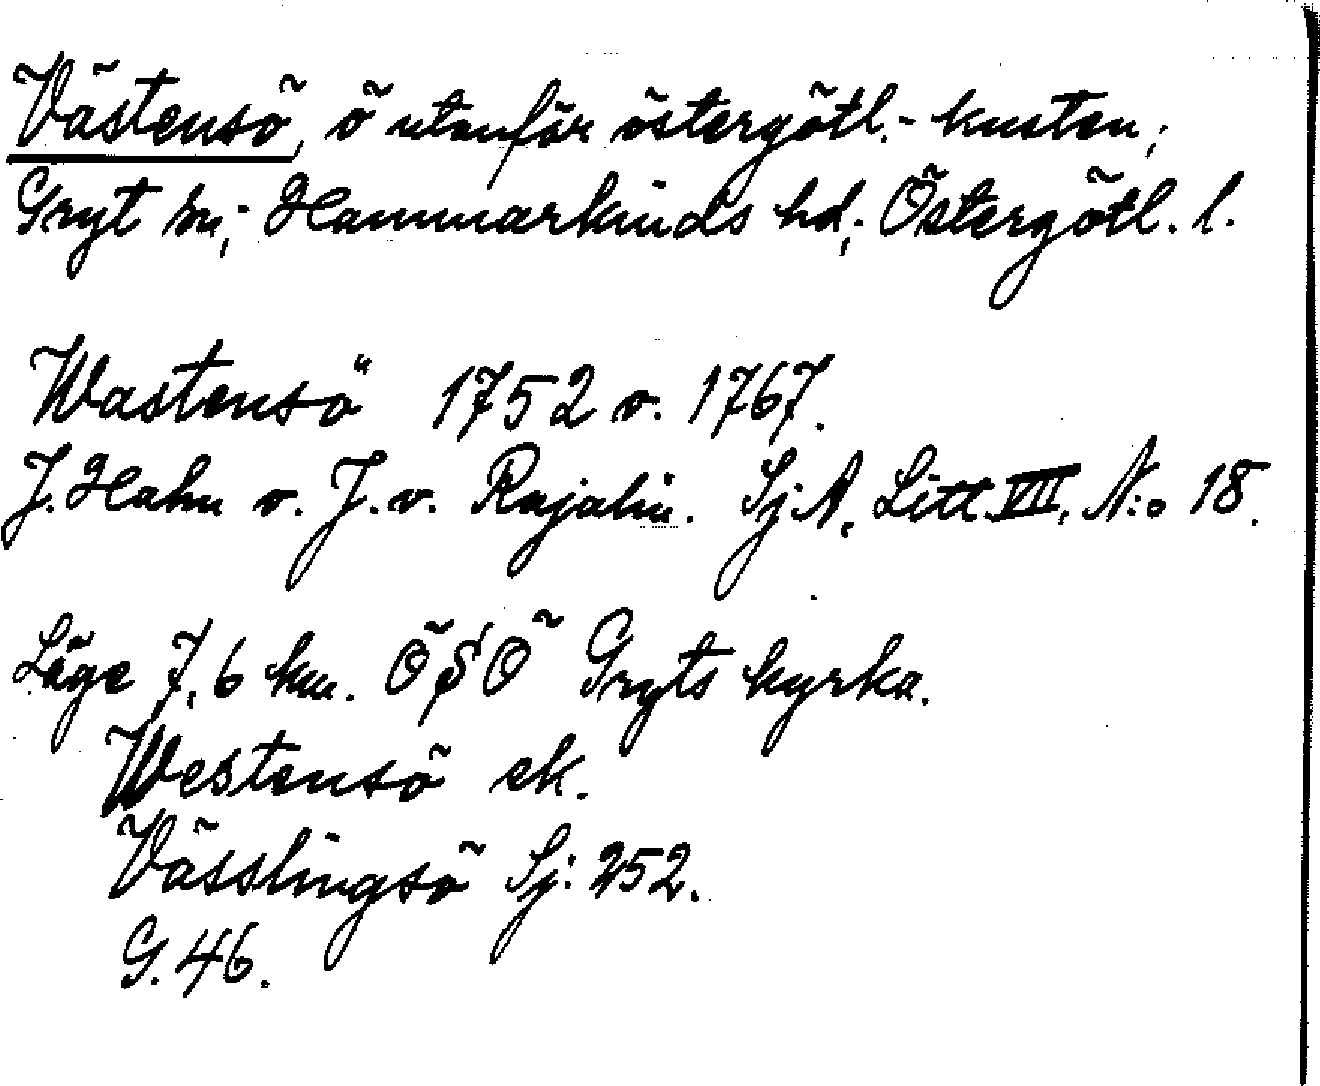 Västensö, ö utanför östergötl.- kusten;
Gryt sn; Hammarkinds hd; Östergötl. l.
Wastensö 1752 o. 1767.
J. Hahn o. J. v. Rajalin. Sj. A. Litt. VII, N:o 18.
Läge 7,6 km. ÖSÖ Gryts kyrka.
Westensö ek.
Västlingsö Sj. 252.
G. 46.